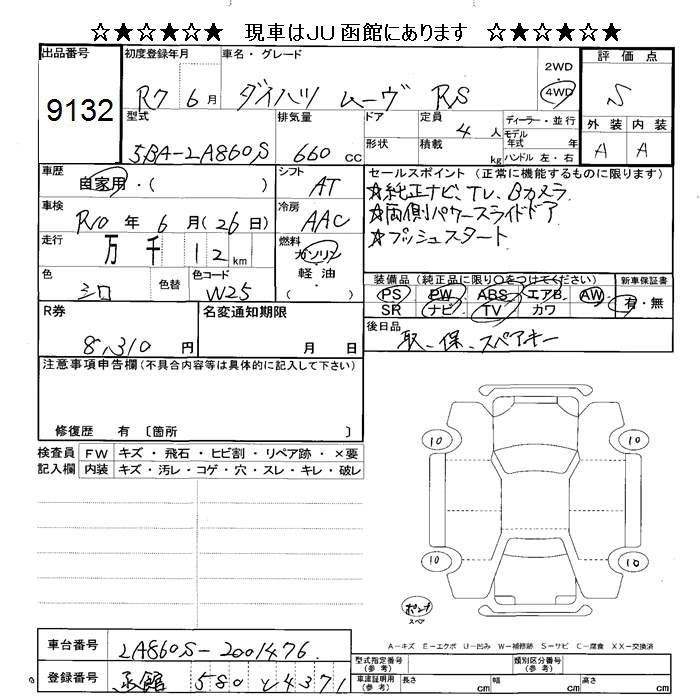 ☆★☆★☆☆ 現車はJU函館にあります ☆★☆★☆☆
出品番号 9132
初度登録年月 R7 6月
車名・グレード ダイハツ ムーヴ RS
2WD 4WD
評価点 S
外装 内装
A A
型式 5BA-LA860S
排気量 660 CC
ドア 形状
定員 4人
積載 kg
ディーラー・並行
モデル年式 年
ハンドル 左・右
車歴 自家用・( )
シフト AT
セールスポイント (正常に機能するものに限ります)
☆純正ナビ、TV、Bカメラ
☆両側パワースライドドア
☆プッシュスタート
車検 R10年6月(26日)
冷房 AAC
走行 万千12km
燃料 ガソリン 軽油 ( )
色 シロ 色替
色コード W25
装備品 (純正品に限り○をつけてください)
PS PW ABS エアB AW
SR ナビ TV カワ
新車保証書 有・無
R券 8,310円
名変通知期限 月 日
後日品 取、保、スペアキー
注意事項申告欄(不具合内容等は具体的に記入して下さい)
修復歴 有 〔箇所 〕
検査員記入欄
FW キズ・飛石・ヒビ割・リペア跡・×要
内装 キズ・汚レ・コゲ・穴・スレ・キレ・破レ
10 10
10 10
パンク
スペア
A−キズ E−エクボ U−凹み W−補修跡 S−サビ C−腐食 XX−交換済
車台番号 LA860S-2001476
登録番号 函館 580 と 4371
型式指定番号(参考)
類別区分番号(参考)
車庫証明用(参考) 長さ cm 幅 cm 高さ cm